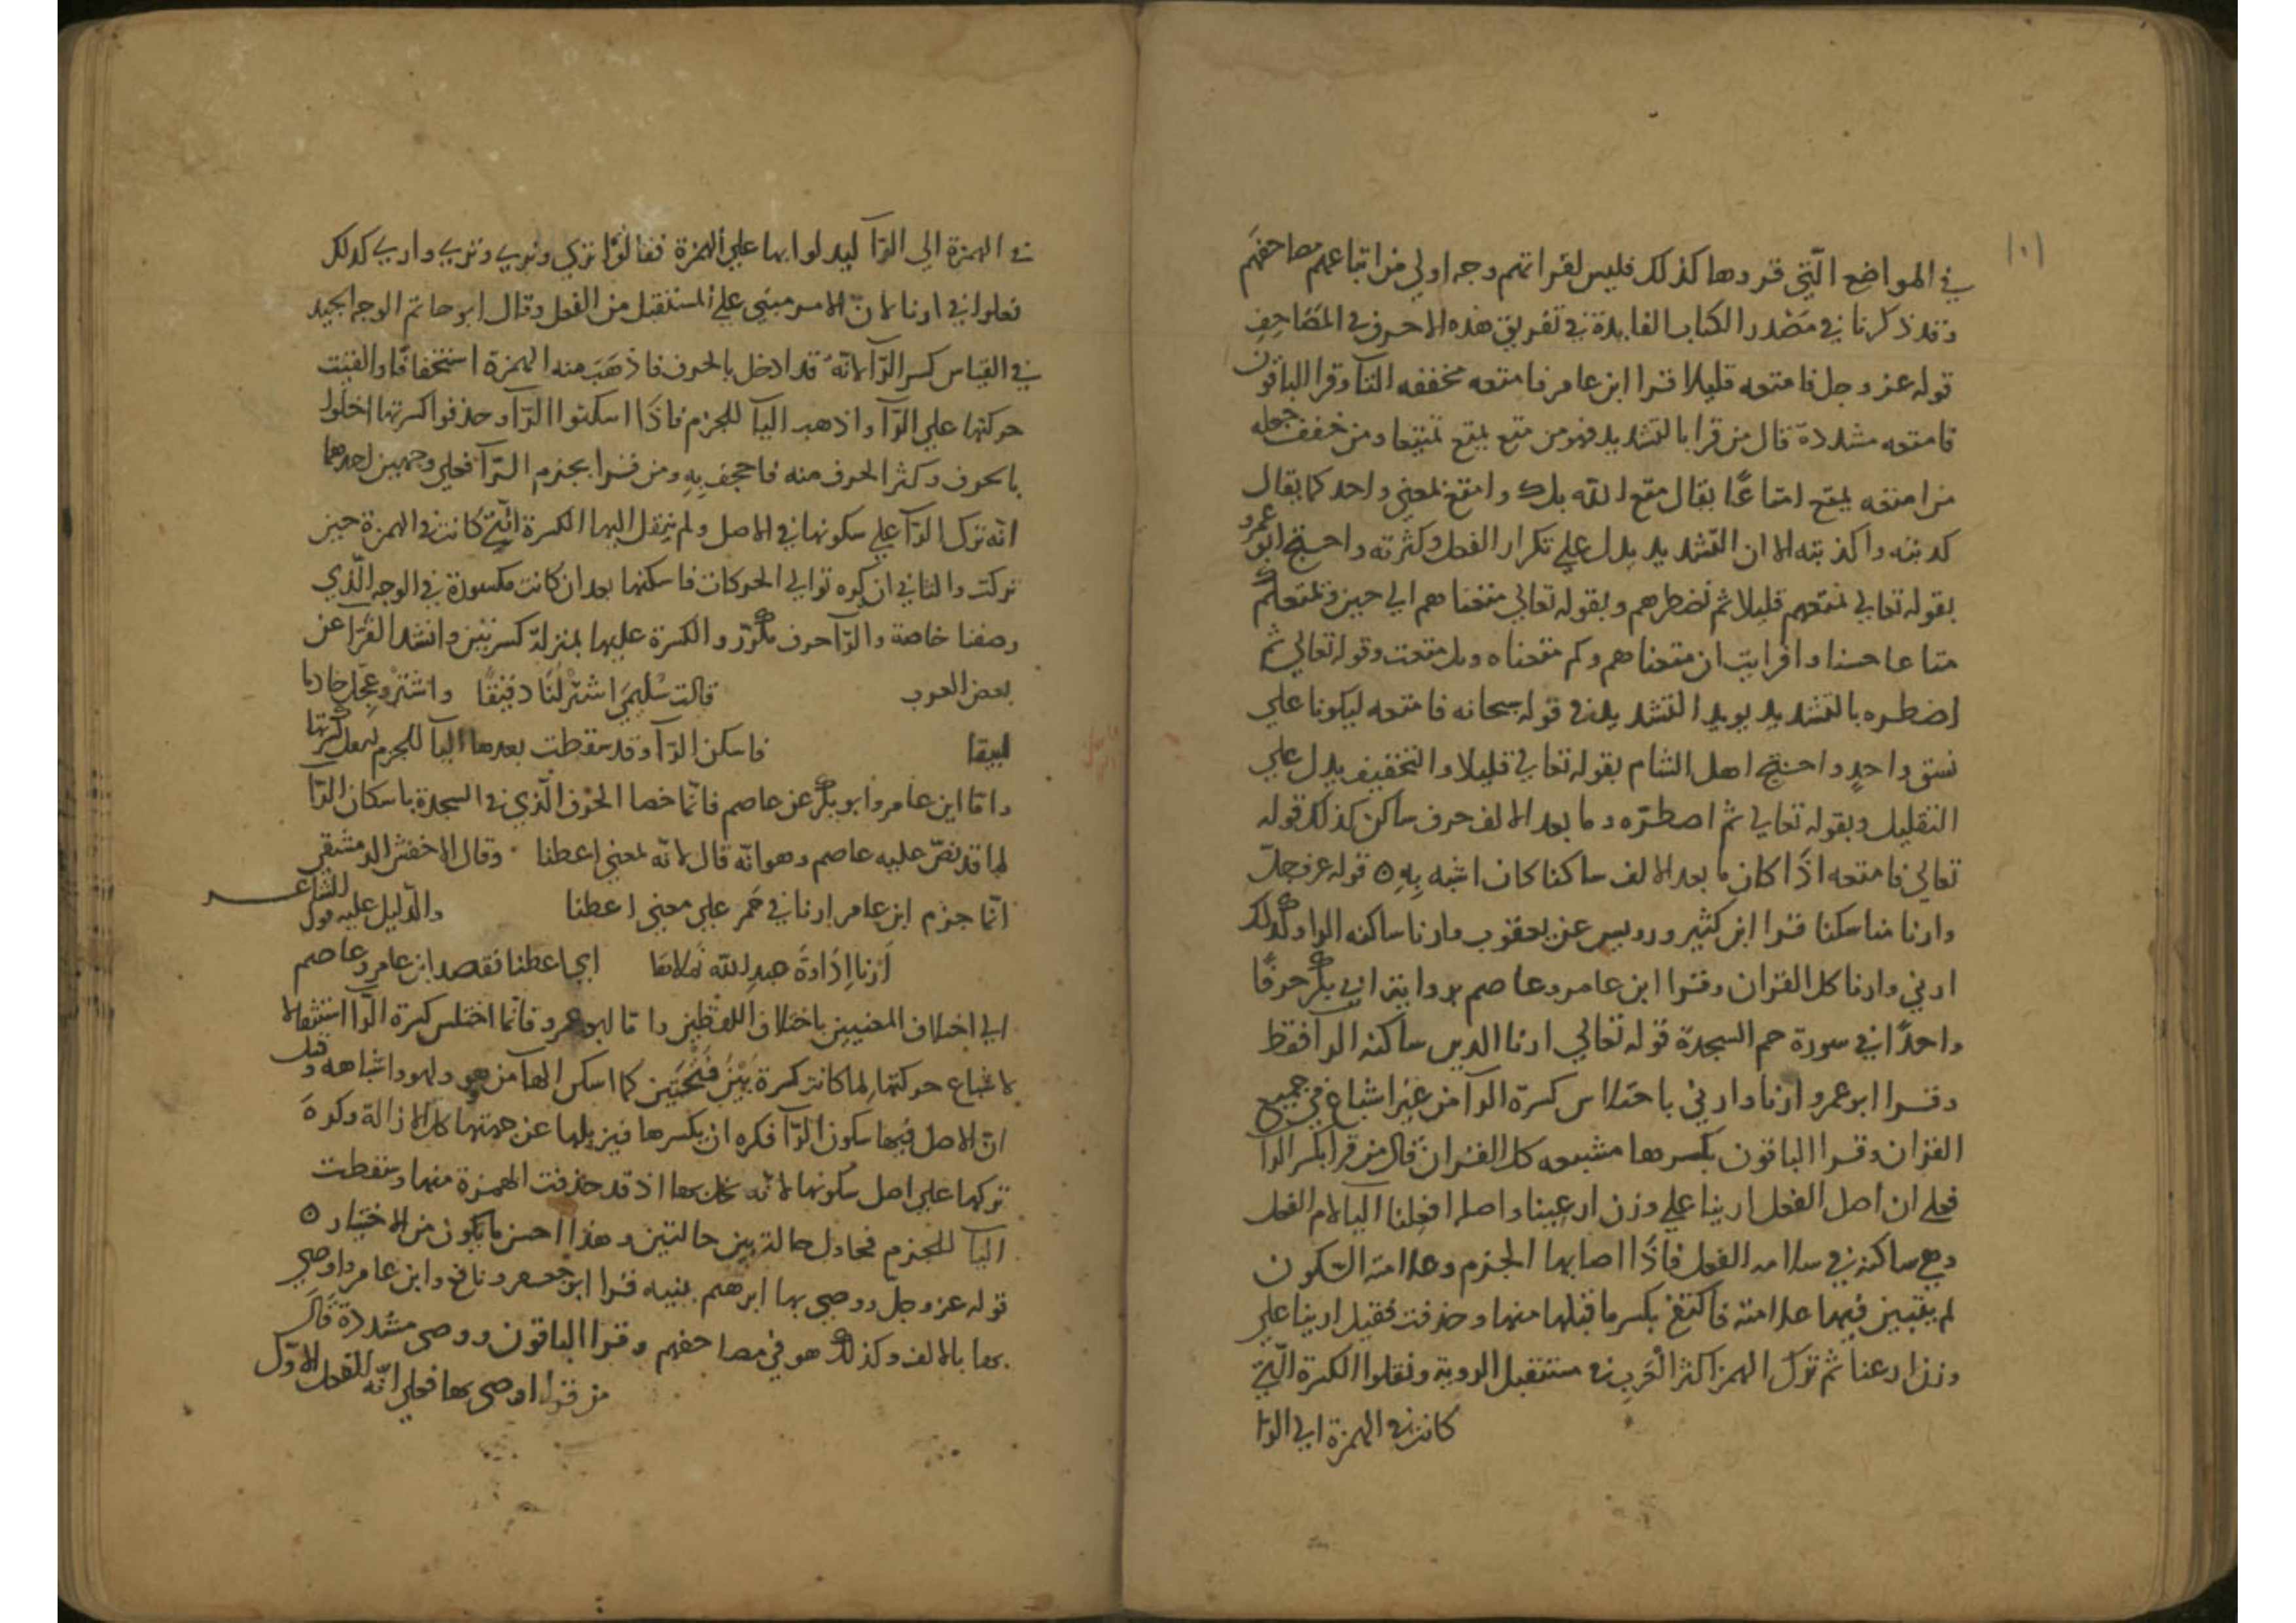 ١٠١
في المواضع الّتي قروها كذلك فليس لقراتهم وجه اولي من اتباعهم مصاحفهم
وقد ذكرنا في مَصْدر الكتاب الفايدة في تفريق هذه الاحرف في المصَاحِفِ
قوله عز وجل فامتعه قليلا قرا ابن عامر فامتعه مخففه التآ وقرا الباقون
فامتعه مشددة قال من قرا بالتشديد فهو من متع يمتع تمتيعا ومن خفف جعله
من امتعه يمتع امتاعًا يقال متع الله بك وامتع لمعني واحد كما يقال
كذبته واكذبته الا ان التشديد يدل علي تكرار الفعل وكثرته واحتج ابو عمرو
بقوله تعالي نمتعهم قليلا ثم نضطرهم وبقوله تعالي متعناهم الي حين ونمتعكم
متاعا حسنا وافرايت ان متعناهم وكم متعناه وبل متعت وقوله تعالي ثم
اضطره بالتشديد يويد التشديد في قوله سبحانه فامتعه ليكونا علي
نسق واحدٍ واحتج اهل الشام بقوله تعالي قليلا والتخفيف يدل علي
التقليل وبقوله تعالي ثم اضطرّه وما بعد الالف حرف ساكن كذلك قوله
تعالي فامتعه اذا كان ما بعد الالف ساكنا كان اشبه بِهِ ٥ قوله عز وجلّ
وارنا مناسكنا قرا ابن كثير ورويس عن يعقوب وارنا ساكنه الرا وكذلك
ارني وارنا كل القران وقرا ابن عامر وعاصم بروايت ابي بكر حرفًا
واحدًا في سورة حم السجدة قوله تعالي ارنا الدين ساكنه الرا فقط
وقرا ابو عمرو ارنا وارني باختلاس كسرة الرآ من غير اشباع في جميع
القران وقرا الباقون بكسرها مشبعه كل القران قال من قرا بكسر الرآ
فعلي ان اصل الفعل ارينا علي وزن ارعينا واصله افعلنا اليآ لام الفعل
وهي ساكنه في الفعل فاذا اصابها الجزم وعلامته السّكون
لم يتبين فيها علامته فاكتفي بكسر ما قبلها منها وحذفت فقيل ارينا علي
وزن ارعنا ثم ترك الهمز اكثر العَرب في مستقبل الروية ونقلوا الكسرة الّتي
كانت في الهمزة الي الرّا
في الهمزة الي الرّآ ليدلوا بها علي الهمزة فقالوا تري ونري ويري واري كذلك
فعلوا في ارنا لانّ الامر مبني علي المستقبل من الفعل وقال ابو حاتم الوجه الجيد
في القياس كسر الرّآ لانّهُ قد ادخل بالحرف فاذهَبَ منه الهمزة استخفافًا والقيت
حركتها علي الرّآ واذهب اليآ للجزم فاذا اسكنوا الرّآ وحذفوا كسرتها اخلوا
بالحرف وكثر الحرف منه فاجحف بِهِ ومن قرا بجزم الرّآ فعلي وجهين احدهما
انّه ترك الرّآ علي سكونها في الاصل ولم ينقل اليها الكسرة الّتي كانت في الهمزة حين
تركت والثاني ان كره توالي الحركات فاسكنها بعد ان كانت مكسورة في الوجه الّذي
وصفنا خاصة والرّآ حرف مكرّر والكسرة عليها بمنزلة كسرتين وانشد الفرّا عن
بعض العرب قالت سُلَيمَي اشتَرْ لنَا دقيقًا واشتَرْ وعجّل خادما
لبيقا فاسكن الرّآ وقد سقطت بعدها اليآ للجزم
وامّا ابن عامر وابو بكر عن عاصم فانّما خصا الحرف الّذي في السجدة باسكان الرّآ
لما قد نصّ عليه عاصم وهو انّه قال لانه لمعني اعطنا وقال الاخفش الدمشقي
انّما جزم ابن عامر ارنا في حم علي معني اعطنا والدّليل عليه قول الشاعر
اَرْنا اِدَاوةَ عبدِ الله نَملاها اي اعطنا فقصد ابن عامر وعاصم
الي اختلاف المعنيين باختلاف اللفظين واما ابو عمرو فانّما اختلس كسرة الرّآ استثقالا
لاشباع حركتها لما كانت كسرة بَيْنَ فَتْحَتَين كما اسكن الهآ من هو ولهو واشباهه وقيل
انّ الاصل فيها سكون الرّآ فكره ان يكسرها فيزيلها عن جهتها كل الازالة وكره
تركها علي اصل سكونها لانّه اذ قد حذفت الهمزة منها وسقطت
اليآ للجزم فحاول حالة بين حالتين وهذا احسن ما يكون من الاختيار ٥
قوله عز وجل ووصي بها ابرهم بنيه قرا ابو جعفر ونافع وابن عامر واوصي
بها بالالف وكذلك هو في مصاحفهم وقرا الباقون ووصي مشددة قال
من قرا اوصي بها فعلي انّه للفعل الاوّل